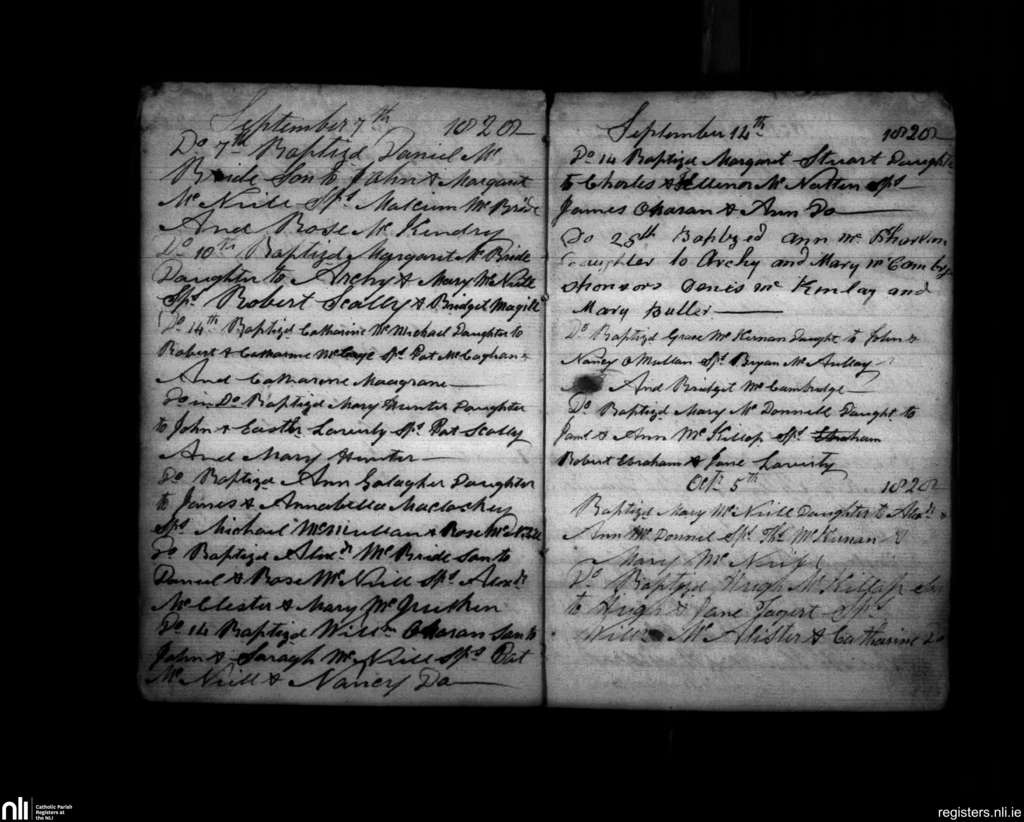 September 7th 1820
Do 7th Baptizd Daniel Mc
Bride Son to John & Margaret
Mc Neill Sps Malcum McBride
And Rose Mc Kendry
Do 10th Baptizd Margaret McBride
Daughter to Archy & Mary McNeill
Sps Robert Scally & Bridget Magill
Do 14th Baptizd Catharine Mc Michael Daughter to
Robert & Catharine Sps Pat McCaghan
And Catharine Maagrane
Do in Do Baptizd Mary Hunter Daughter
to John & Easter Laverty Sps Pat Scally
And Mary Hunter
Do Baptizd Ann Galagher Daughter
to James & Annabella Maclockey
Sps Michael McMullan & Rose McNeill
Do Baptizd Alexdr McBride Son to
Daniel & Rose McNeill Sps Alexdr
Mc Clester & Mary
Do 14 Baptizd Willm Oharan Son to
John & Saragh McNeill Sps Pat
Mc Neill & Nancy Do
September 14th 1820
Do 14 Baptizd Margaret Stuart Daughter
to Charles & Ellenor Mc Natten Sps
James Oharan & Ann Do
Do 25th Baptized ann mc
Daughter to Archy and Mary
shonsors Denis mc Kinlay and
Mary Butler
Do Baptizd Grace McKernan Daught to John &
Nancy OMullan Sps Bryan McAullay
And Bridget McCambridge
Do Baptizd Mary McDonnell Daught to
Jams & Ann McKillop Sps Ebraham
Robert Ebraham & Jane Laverty
Octr 5th 1820
Baptizd Mary McNeill Daughter to Alexdr &
Ann McDonnel Sps Ths McKernan &
Mary McNeill
Do Baptizd Hugh McKillop Son
to Hugh & Jane Sps
Willm McAlister & Catharine Do
nli Catholic Parish
Registers at
the NLI
registers.nli.ie